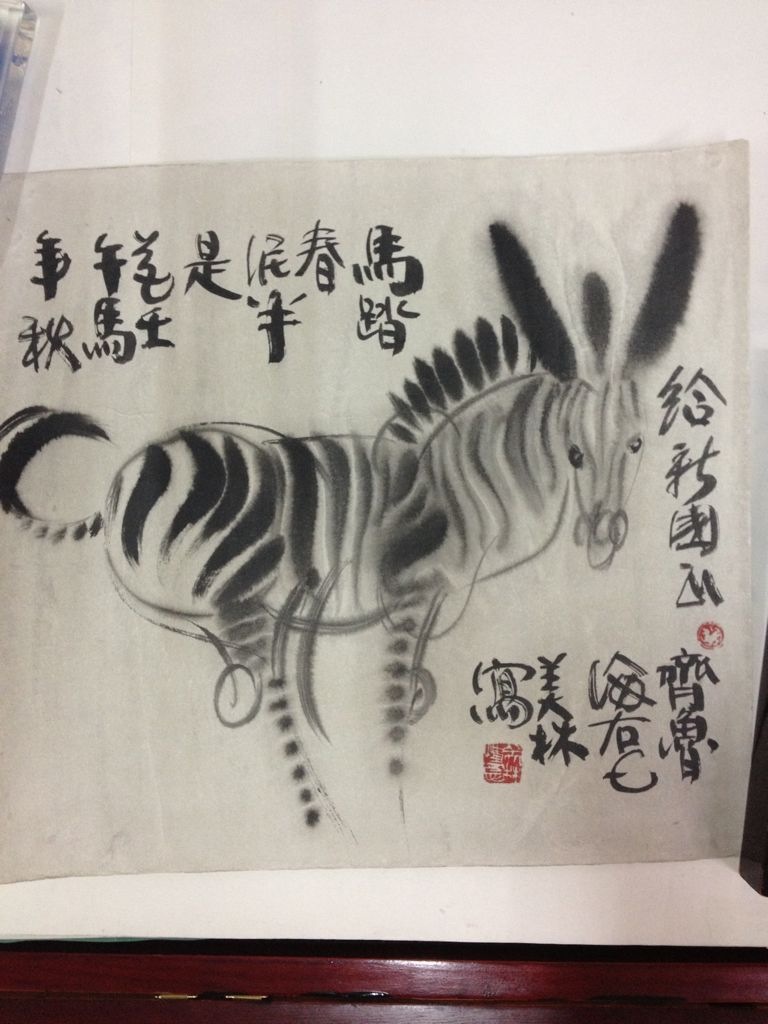 馬踏
春
泥半
是
花壬
午馬
年秋
給新國
齊魯
海右
美林
寫